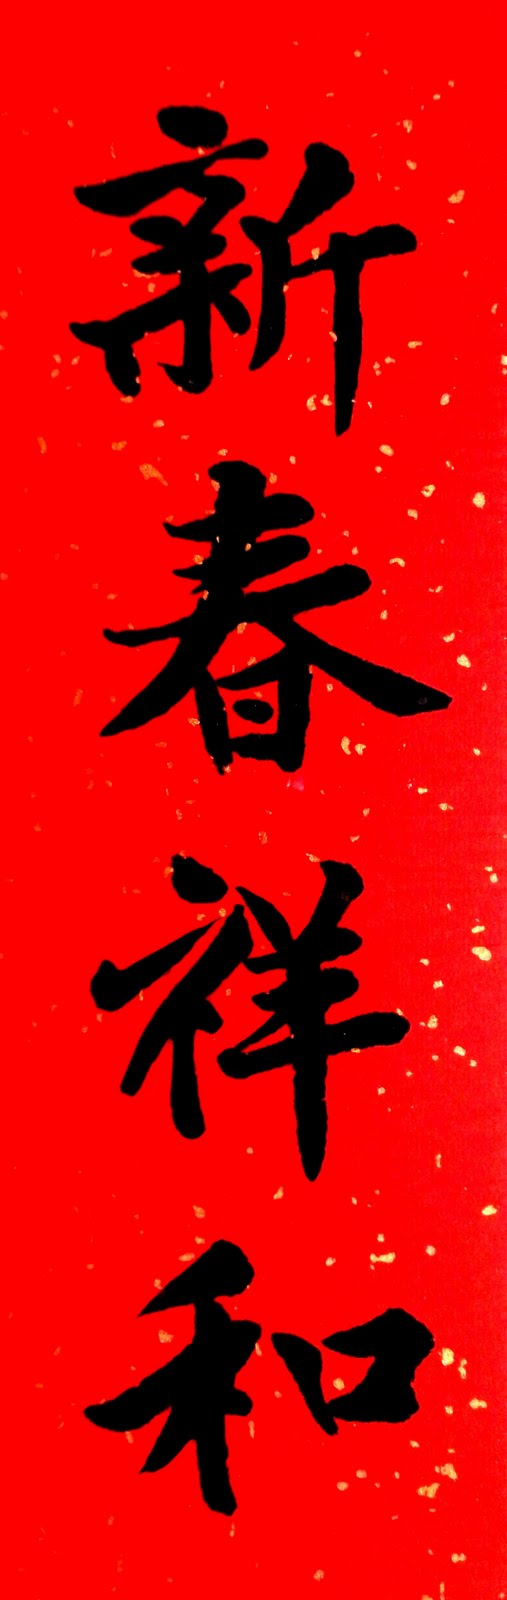 新春祥和